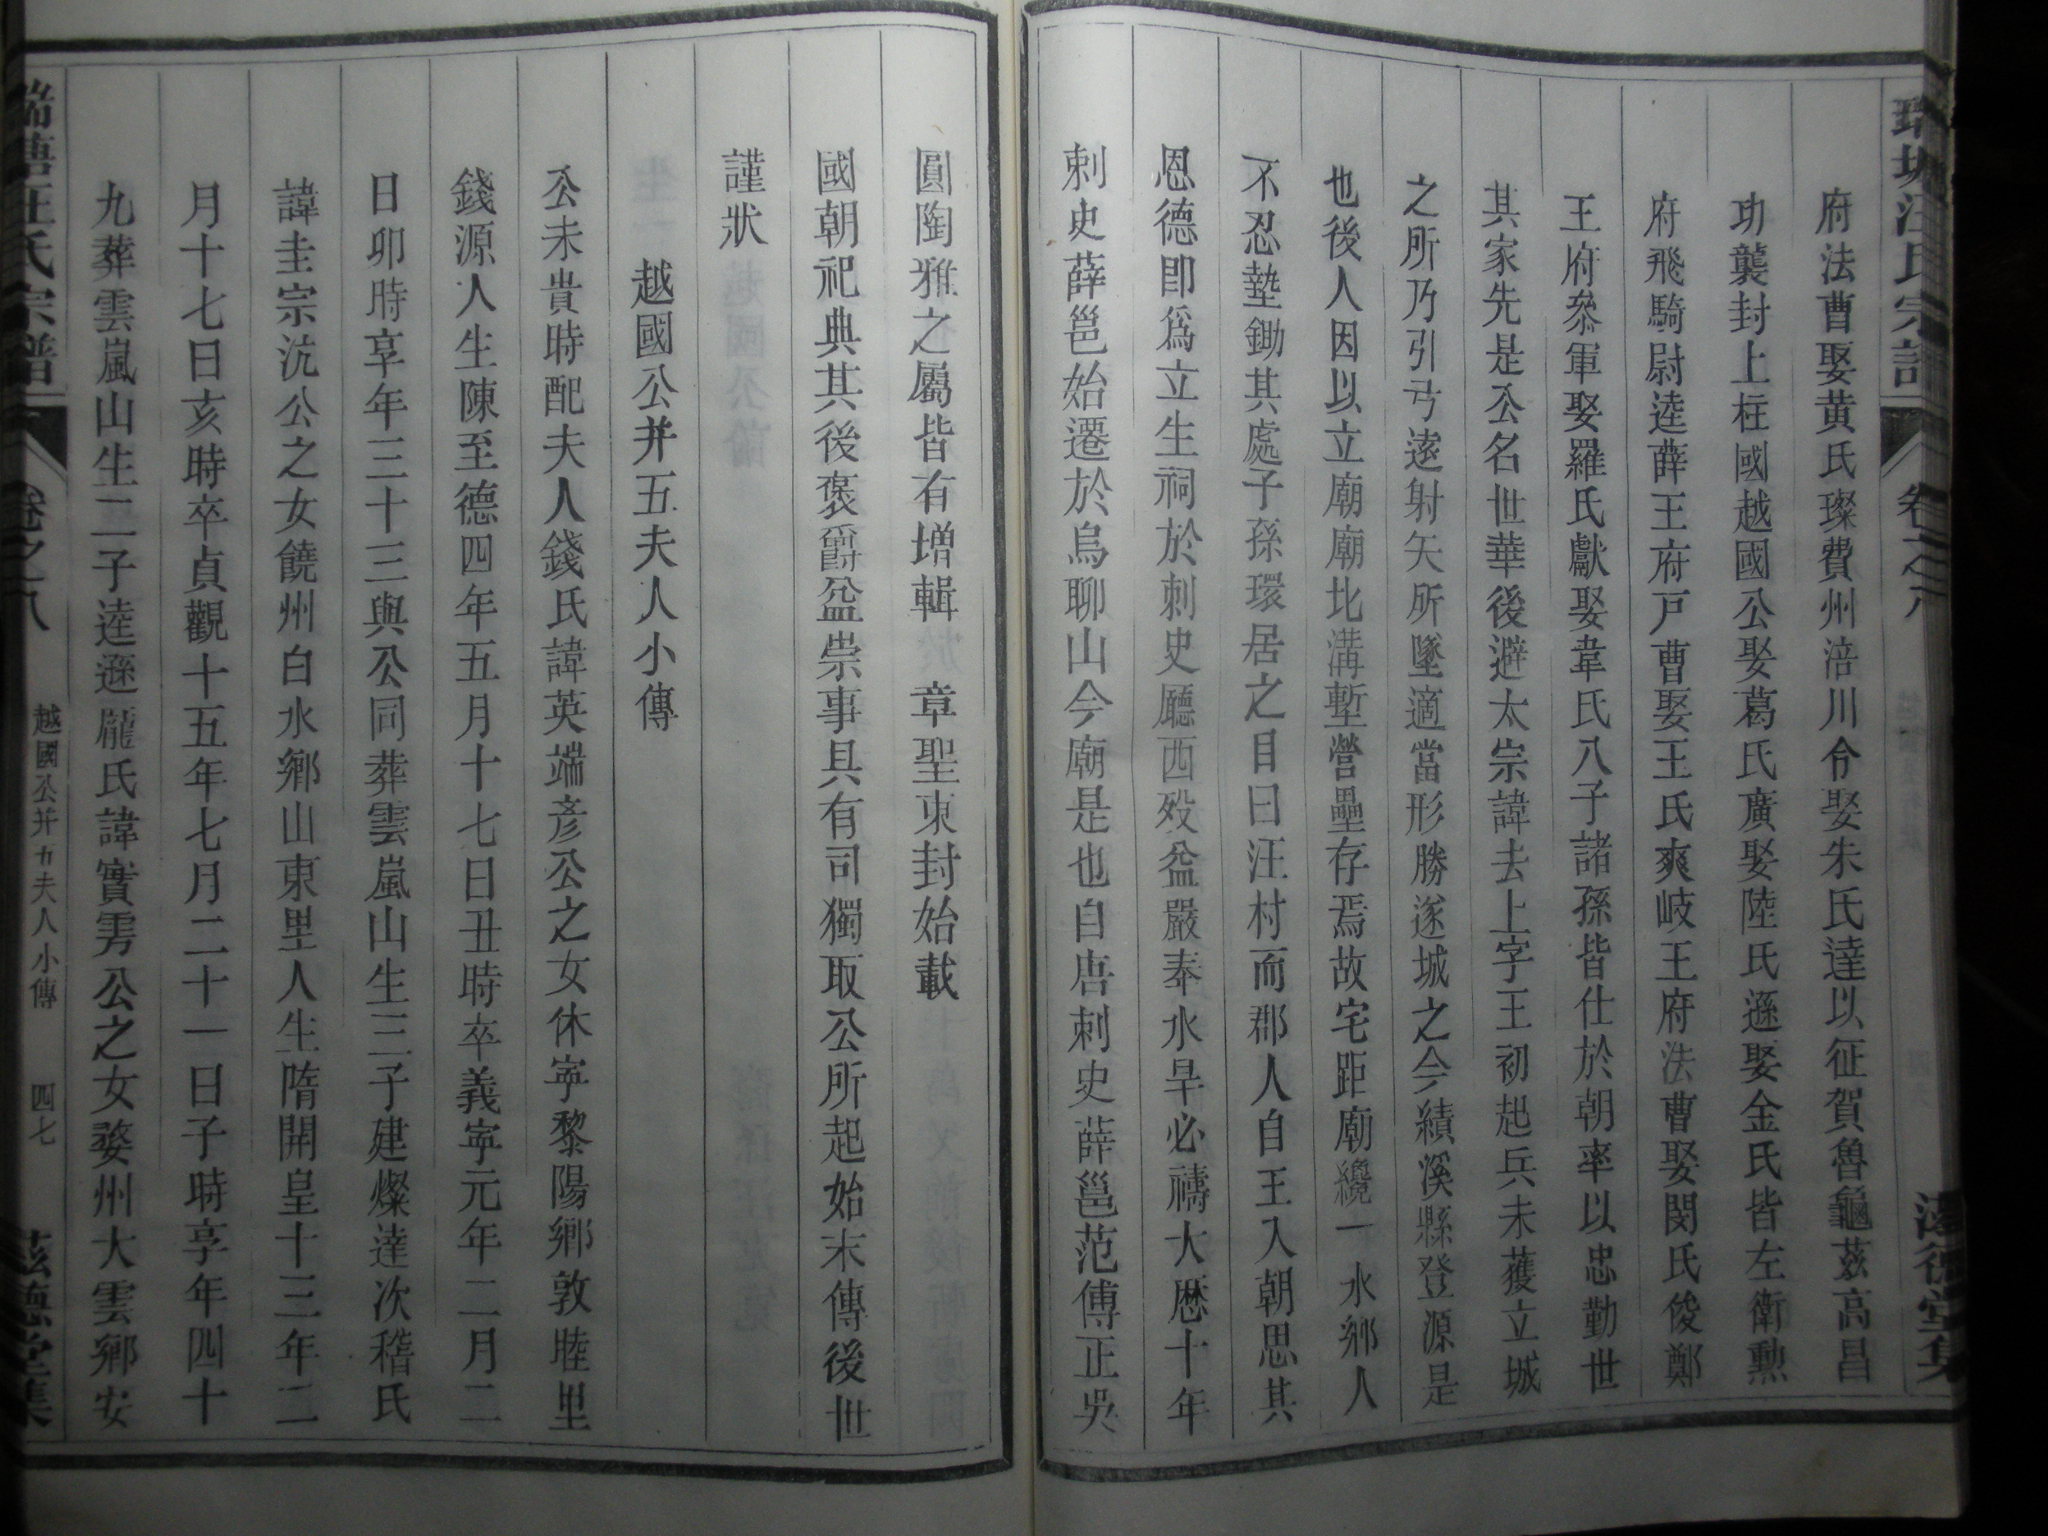 汪氏宗譜
卷之八
府法曹娶黃氏璨費州涪川令娶朱氏達以征賀魯龜茲高昌
功襲封上柱國越國公娶葛氏廣娶陸氏遜娶金氏皆左衛勲
府飛騎尉逵薛王府戸曹娶王氏爽岐王府法曹娶閔氏俊鄭
王府叅軍娶羅氏獻娶韋氏八子諸孫皆仕於朝率以忠勤世
其家先是公名世華後避太宗諱去上字王初起兵未獲立城
之所乃引弓遠射矢所墜適當形勝遂城之今績溪縣登源是
也後人因以立廟廟北溝塹營壘存焉故宅距廟纔一水鄉人
不忍墊鋤其處子孫環居之目曰汪村而郡人自王入朝思其
恩德即爲立生祠於刺史廳西殁益嚴奉水旱必禱大厯十年
刺史薛邕始遷於烏聊山今廟是也自唐刺史薛邕范傅正吳
圓陶雅之屬皆有增輯 章聖東封始載
國朝祀典其後褒爵益崇事具有司獨取公所起始末傳後世
謹狀
越國公并五夫人小傳
公未貴時配夫人錢氏諱英端彦公之女休寧黎陽鄉敦睦里
錢源人生陳至德四年五月十七日丑時卒義寧元年二月二
日卯時享年三十三與公同葬雲嵐山生三子建燦達次稽氏
諱圭宗沆公之女饒州白水鄉山東里人生隋開皇十三年二
月十七日亥時卒貞觀十五年七月二十一日子時享年四十
九葬雲嵐山生二子逵遜龐氏諱實雱公之女婺州大雲鄉安
汪氏宗譜
卷之八
越國公并五夫人小傳
四七
德堂集